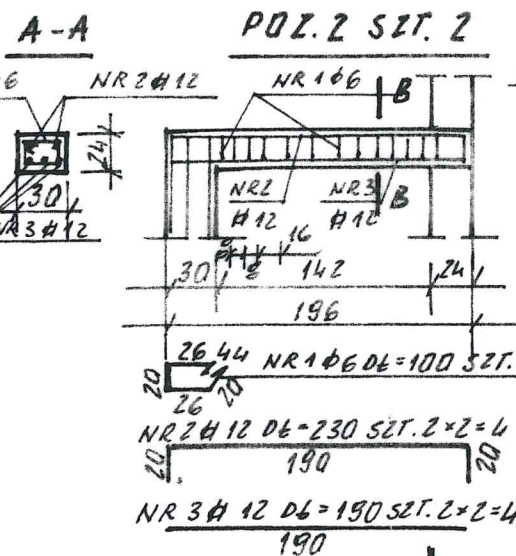 A-A
POZ. 2 SZT. 2
6
NR 2 # 12
NR 1 ϕ6
B
24
NR2
# 12
NR3
# 12
B
30
NR3 # 12
16
8
30
142
24
196
26 44
NR 1 ϕ6 DŁ=100 SZT.
20
26
20
NR 2 # 12 DŁ=230 SZT. 2×2=4
20
190
20
NR 3 # 12 DŁ=190 SZT. 2×2=4
190